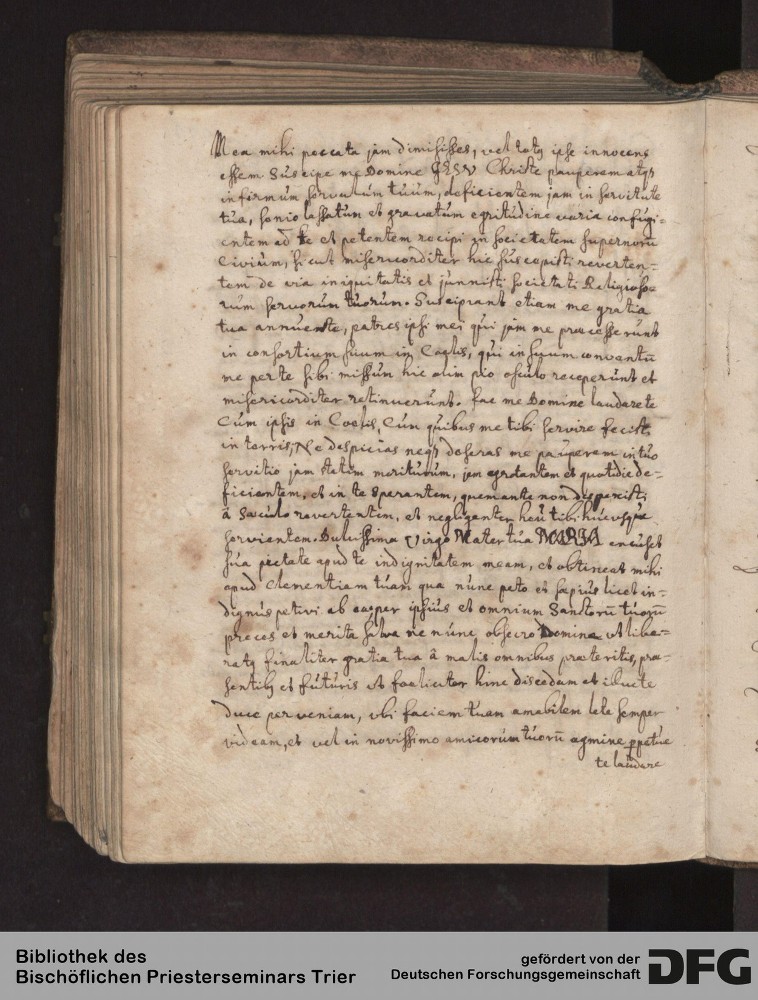 Mea mihi peccata jam dimisisses, vel totq ipse innocens
essem. Suscipe me Domine JESV Christe pauperem atqz
infirmum servulum tuum, deficientem jam in servitute
tua, senio lassatum et gravatum egritudine varia confugi=
entem ad te et petentem recipi in societatem supernorū
Civium, sicut misericorditer hic suscepisti reverten=
tem de via iniquitatis et junxisti societati Religioso=
rum servorum tuorum. Suscipiant etiam me gratia
tua annuente, patres ipsi mei qui jam me præcesserunt
in consortium suum in Cælis, qui in suum conventū
me per te sibi missum hic olim pio osculo receperunt et
misericorditer retinuerunt. fac me Domine laudare te
Cum ipsis in Coelis, Cum quibus me tibi servire fecisti
in terris, Ne despicias neqz deseras me pauperem in tuo
servitio jam statim moriturum, jam egrotantem et quotidie de=
ficientem, et in te sperantem, quem ante non despexisti
â Sæculo revertentem, et negligenter heu tibi hucusque
servientem. Dulcissima Virgo Mater tua MARIA excuset
sua pietate apud te indignitatem meam, et obtineat mihi
apud Clementiam tuam qua nunc peto et sæpius licet in=
dignus petivi ab ea per ipsius et omnium Sanctorū tuorū
preces et merita salva me nunc obsecro Domine vt libe=
ratq finaliter gratia tua â malis omnibus præteritis, præ=
sentibq et futuris vt foeliciter hinc discedam et ibi te
duce perveniam, vbi faciem tuam amabilem læte semper
videam, et vel in novissimo amicorum tuorū agmine ppetue
te laudare
Bibliothek des
Bischöflichen Priesterseminars Trier
gefördert von der
Deutschen Forschungsgemeinschaft
DFG